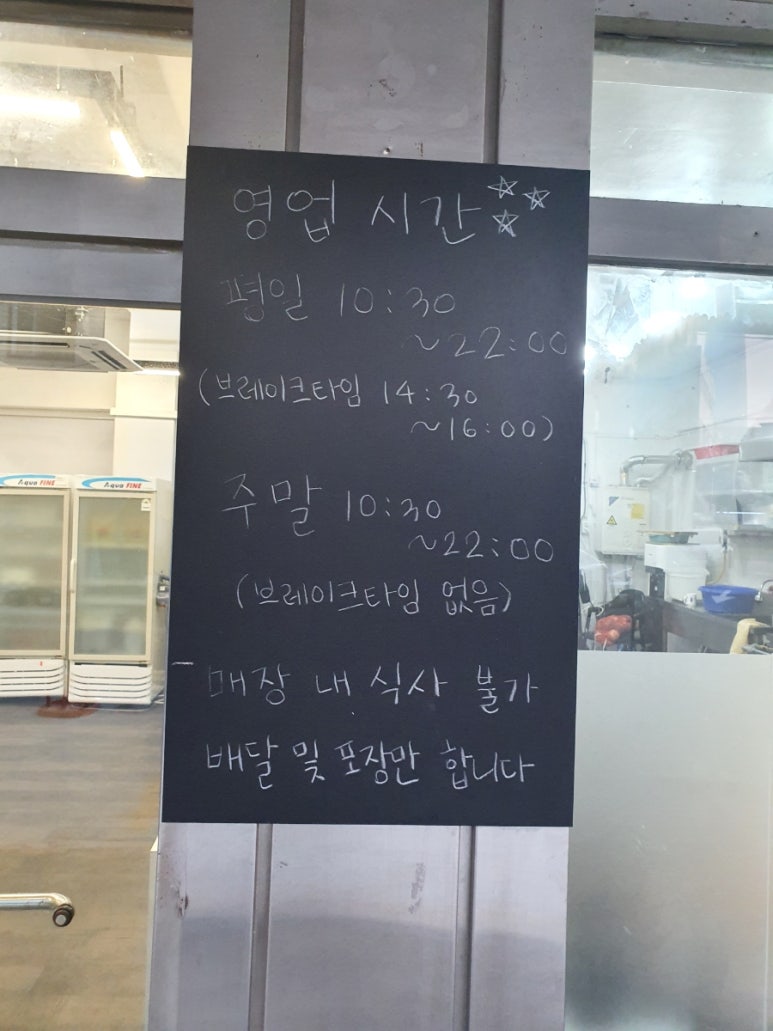 영업 시간
평일 10:30
~22:00
(브레이크타임 14:30
~16:00)
주말 10:30
~22:00
(브레이크타임 없음)
매장 내 식사 불가
배달 및 포장만 합니다
Aqua FINE
Aqua FINE